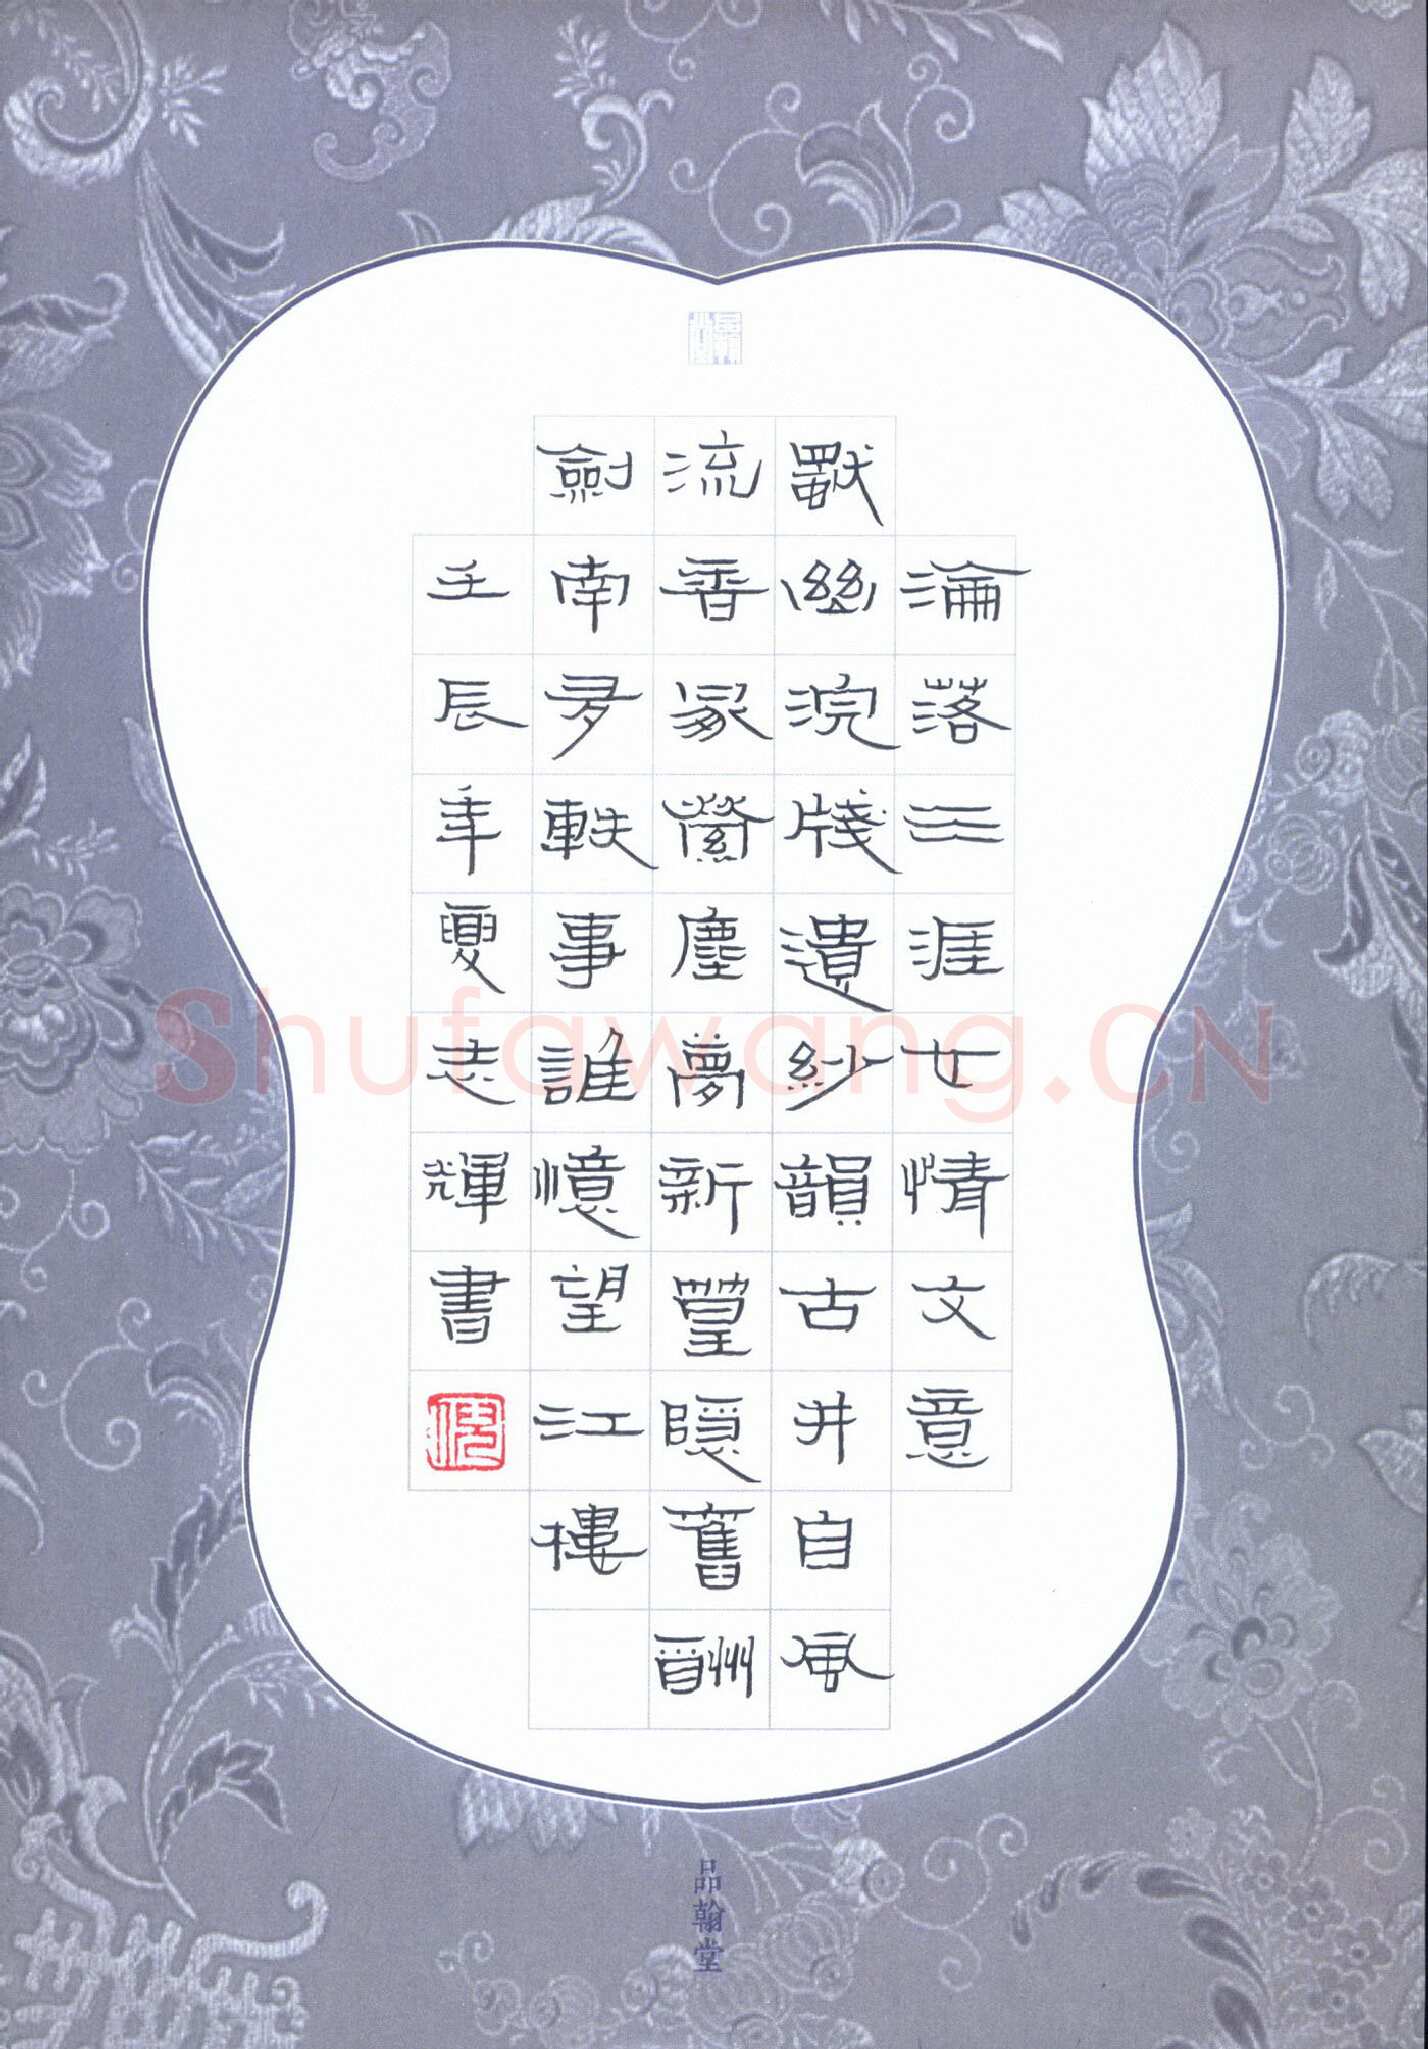 淪落三涯七情文意
獸幽浣牋遺紗韻古井自風
流香冢縈塵夢新篁隱舊酬
劍南多軼事誰憶望江樓
壬辰年夏志輝書
品翰堂
Shufawang.CN